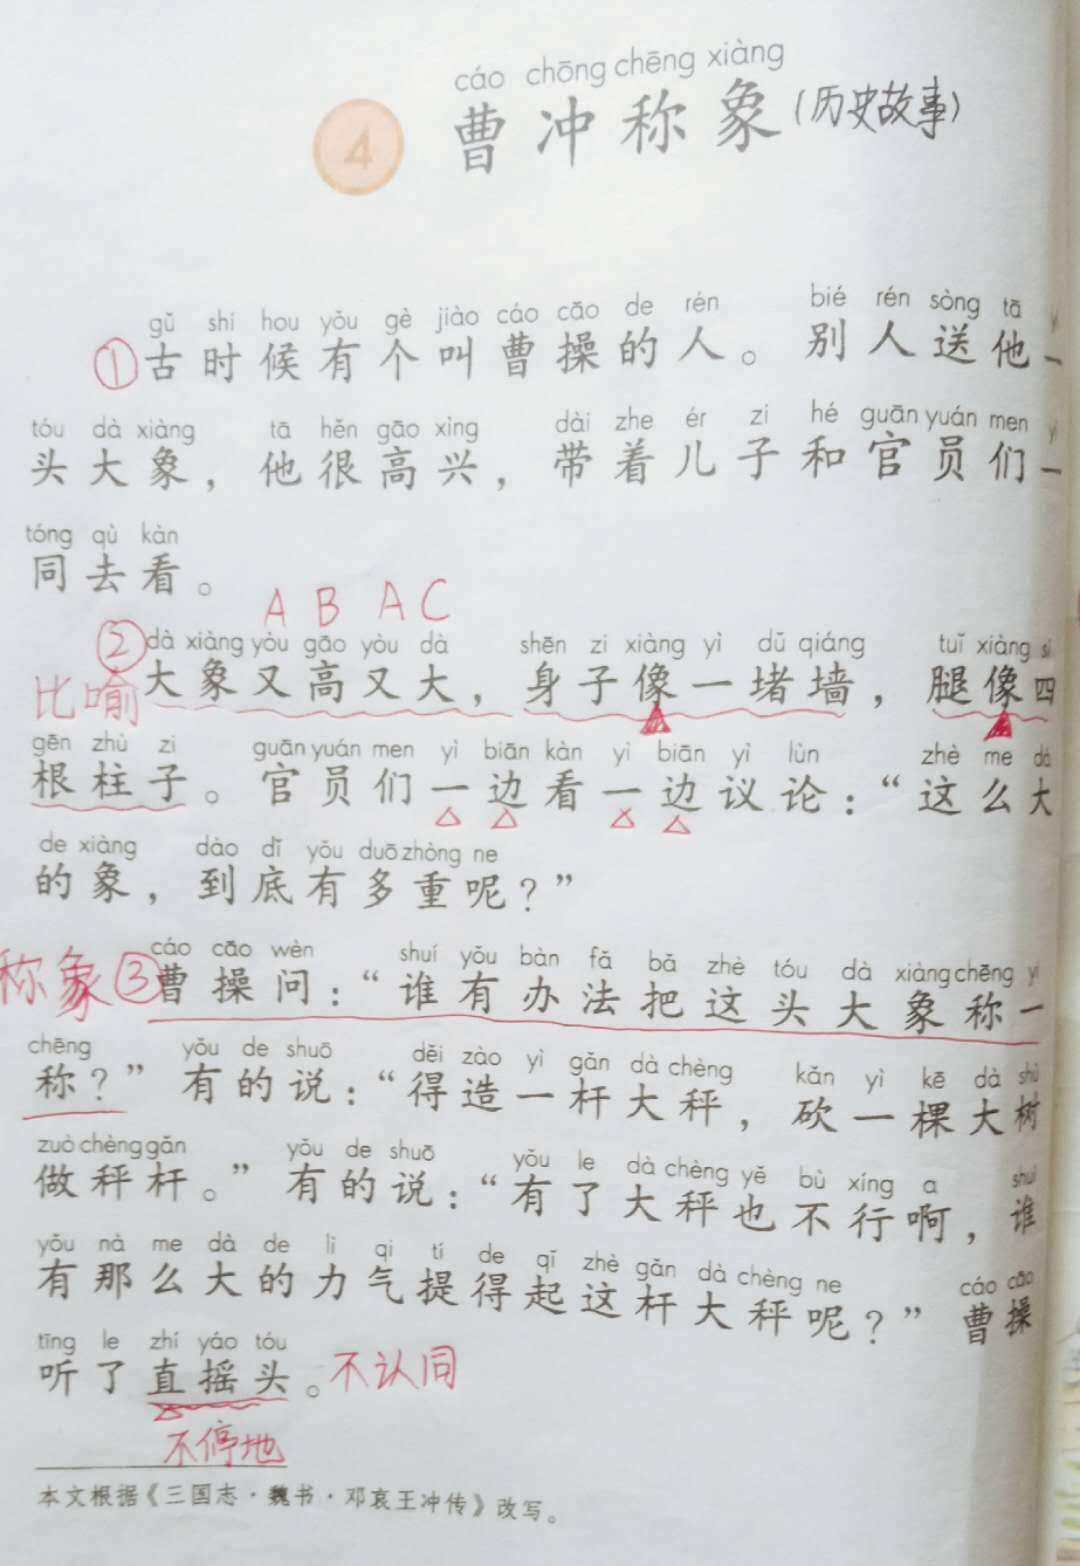 cáo chōng chēng xiàng
4 曹冲称象(历史故事)
gǔ shí hou yǒu gè jiào cáo cāo de rén bié rén sòng tā
①古时候有个叫曹操的人。别人送他一
tóu dà xiàng tā hěn gāo xìng dài zhe ér zi hé guān yuán men yì
头大象，他很高兴，带着儿子和官员们一
tóng qù kàn
同去看。
A B A C
dà xiàng yòu gāo yòu dà shēn zi xiàng yì dǔ qiáng tuǐ xiàng sì
②大象又高又大，身子像一堵墙，腿像四
比喻
gēn zhù zi guān yuán men yì biān kàn yì biān yì lùn zhè me dà
根柱子。官员们一边看一边议论：“这么大
de xiàng dào dǐ yǒu duō zhòng ne
的象，到底有多重呢？”
cáo cāo wèn shuí yǒu bàn fǎ bǎ zhè tóu dà xiàng chēng yì
称象③曹操问：“谁有办法把这头大象称一
chēng yǒu de shuō děi zào yì gǎn dà chèng kǎn yì kē dà shù
称？”有的说：“得造一杆大秤，砍一棵大树
zuò chèng gǎn yǒu de shuō yǒu le dà chèng yě bù xíng a shuí
做秤杆。”有的说：“有了大秤也不行啊，谁
yǒu nà me dà de lì qi tí de qǐ zhè gǎn dà chèng ne cáo cāo
有那么大的力气提得起这杆大秤呢？”曹操
tīng le zhí yáo tóu
听了直摇头。不认同
不停地
本文根据《三国志·魏书·邓哀王冲传》改写。